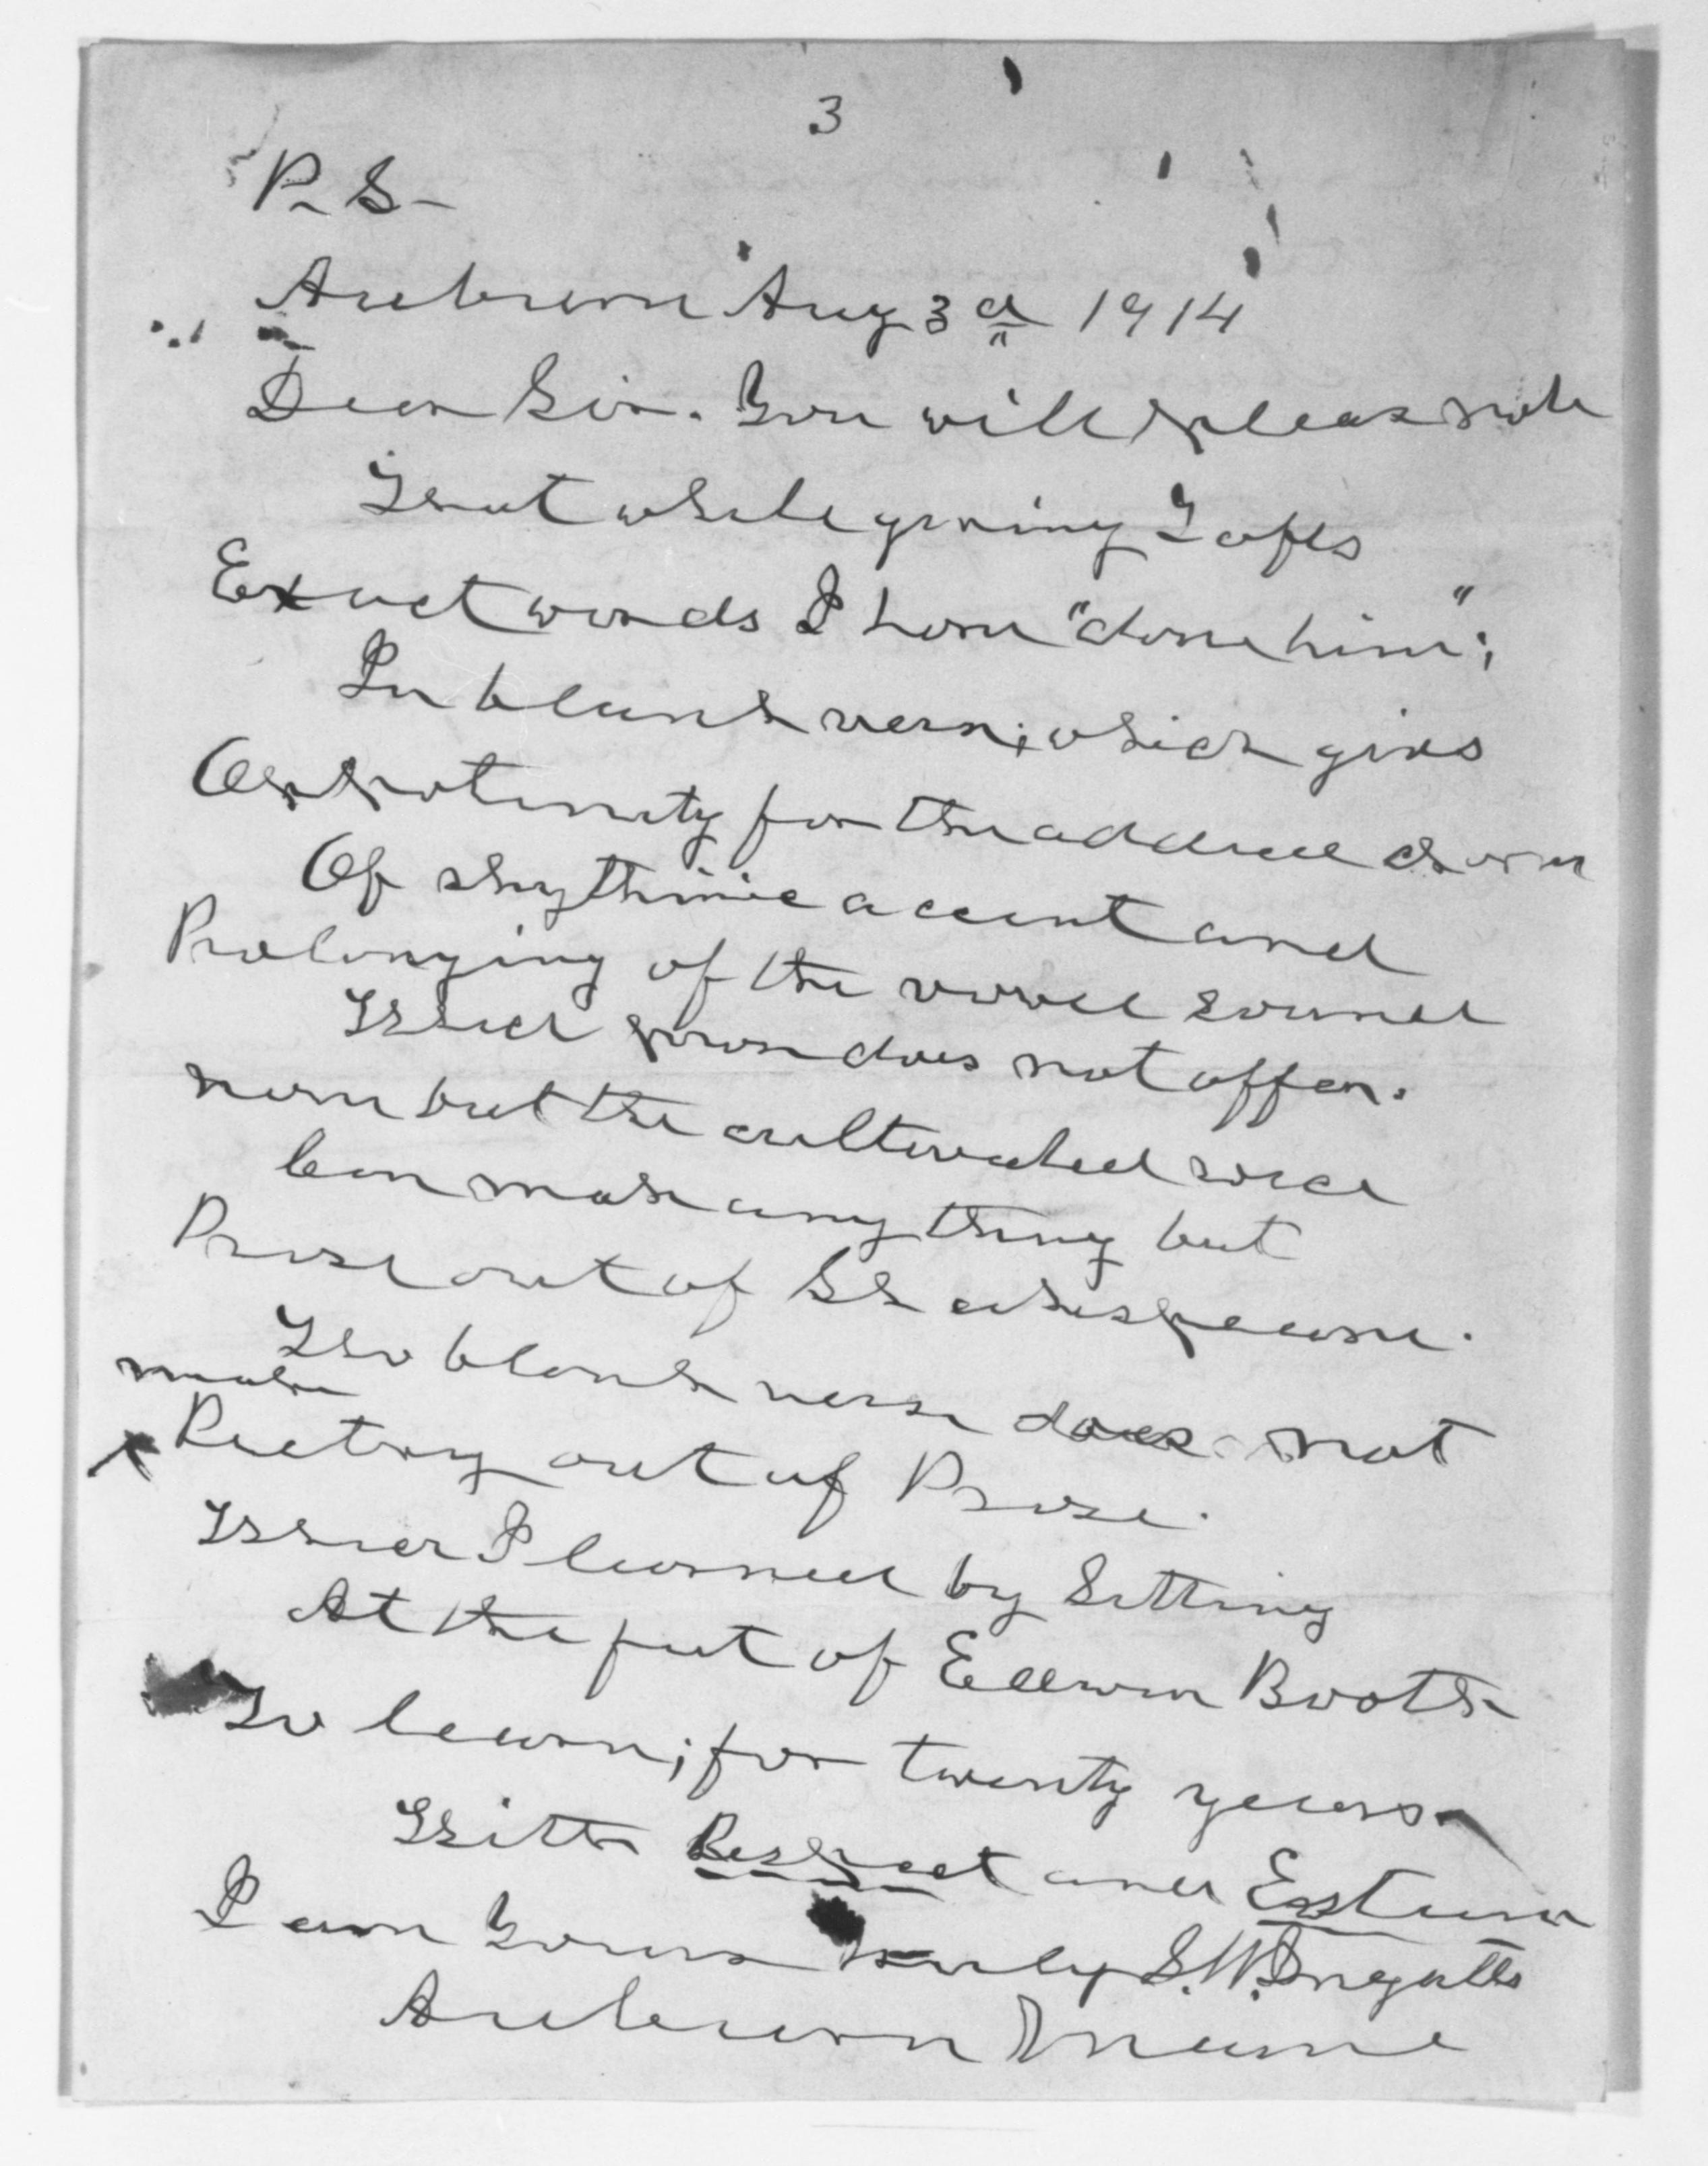 3
P.S-
Auburn Aug 3d 1914
Dear Sir. You will please note
That while giving Tafts
Exact words I have "done him";
In blank verse; which gives
Opportunity for the added charm
Of rhythmic accent and
Prolonging of the vowel sound
Which prose does not offer.
none but the cultivated voice
Can make any thing but
Prose out of Shakespeare.
Tho blank verse does not
make
Poetry out of Prose.
Which I learned by Sitting
At the feet of Edwin Booth
To learn; for twenty years.
With Respect and Esteem
I am Yours truly S. W. Ingalls
Auburn Maine